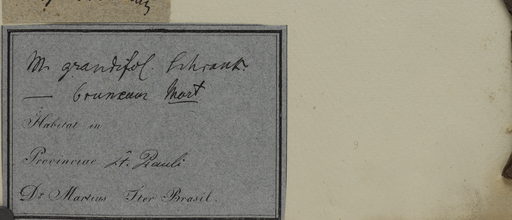 M. grandifol. Schrank.
— Mart
Habitat in
Provinciae St. Pauli
Dr Martius Iter Brasil.